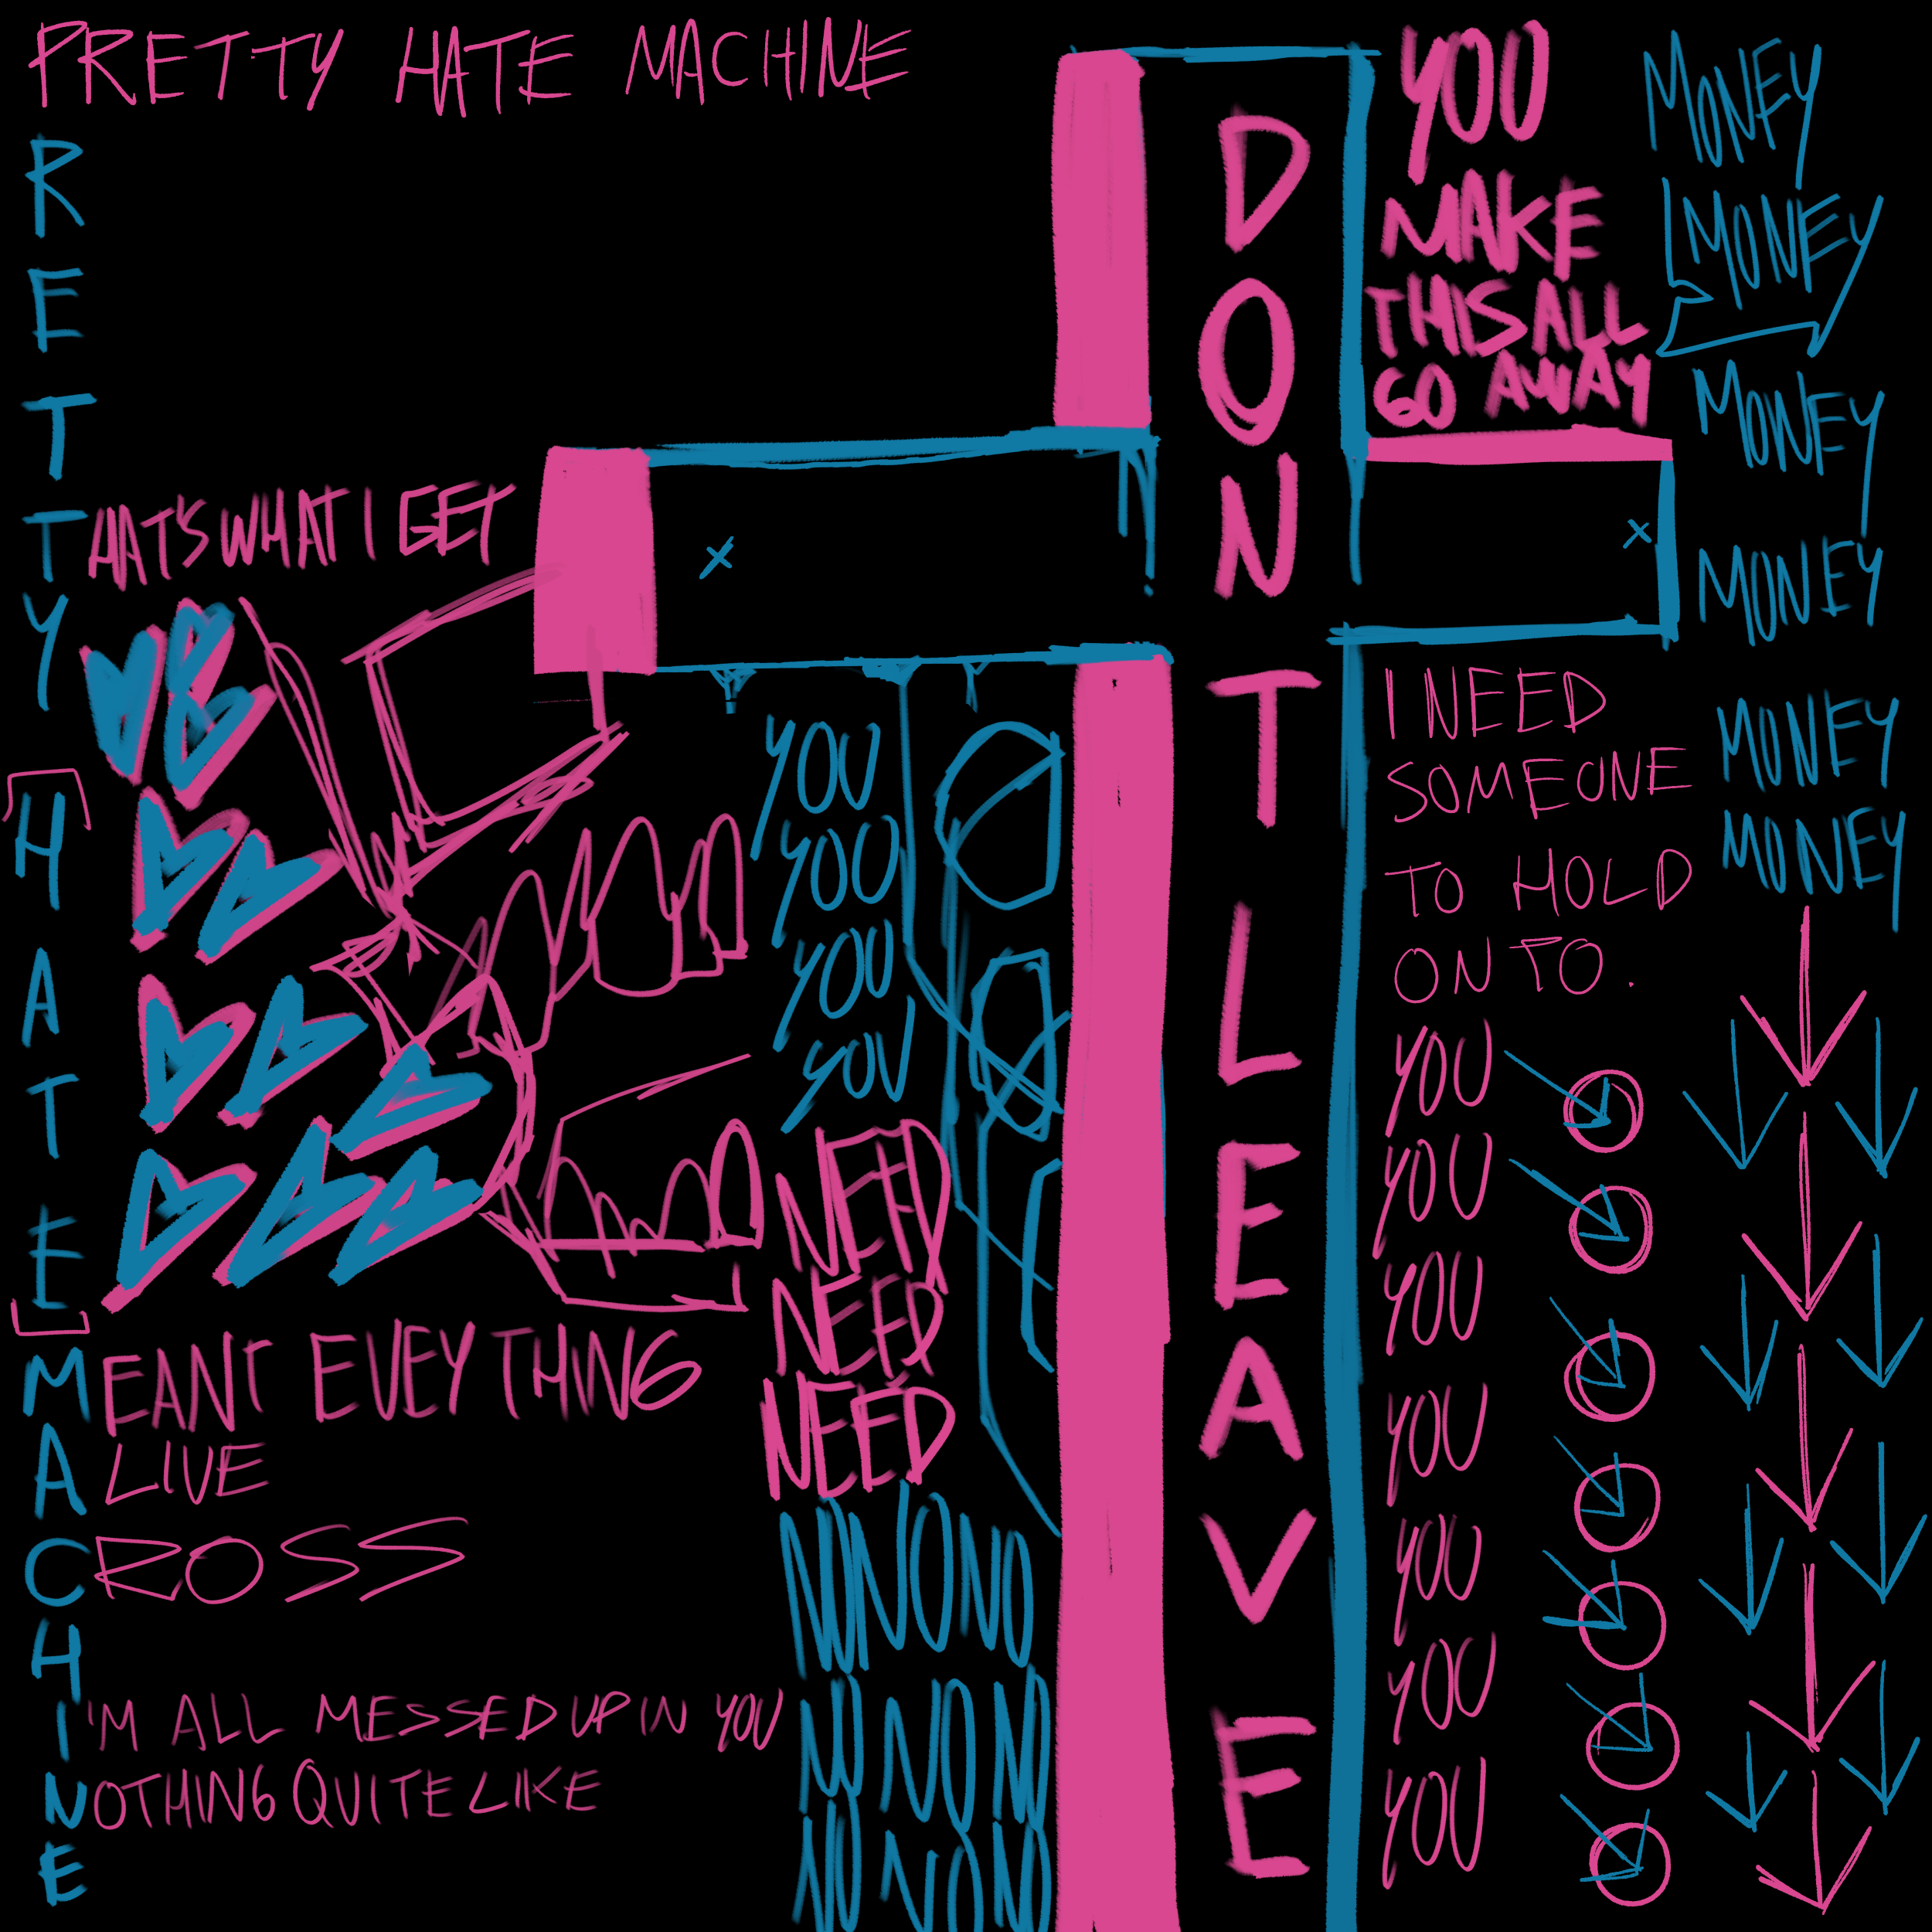 PRETTY HATE MACHINE
RETTY
[HATE]
MACHINE
THAT'S WHAT I GET
MEANT EVEYTHING
LIVE
CROSS
I'M ALL MESSED UP IN YOU
NOTHING QUITE LIKE
YOU
YOU
YOU
YOU
NEED
NEED
NEED
NO NO NO
NO NO NO
NO NO NO
DONT LEAVE
YOU
MAKE
THIS ALL
GO AWAY
I NEED
SOMEONE
TO HOLD
ON TO.
YOU
YOU
YOU
YOU
YOU
YOU
YOU
MONEY
MONEY
MONEY
MONEY
MONEY
MONEY